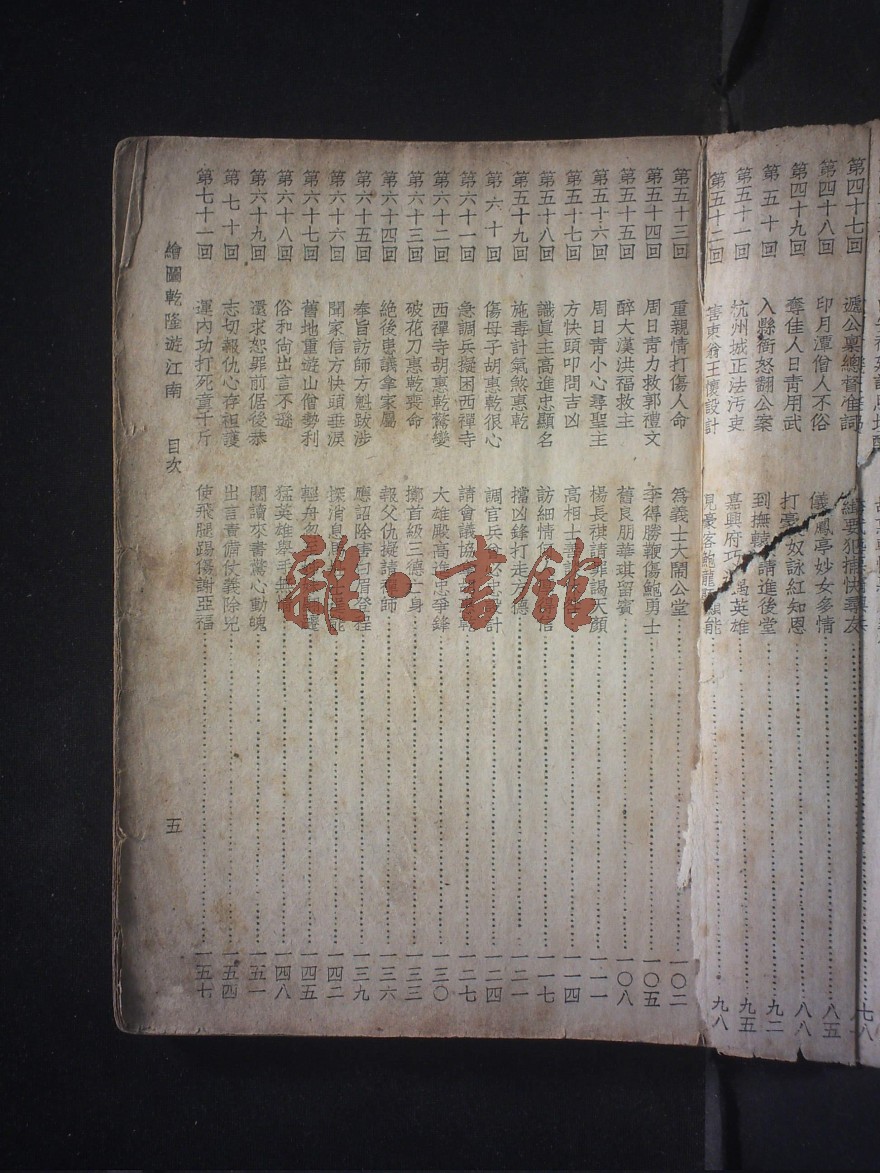 第四十七回 遞公稟總督准詞 緝要犯捕快尋友 七八
第四十八回 印月潭僧人不俗 儀鳳亭妙女多情 八五
第四十九回 奪佳人日青用武 打豪奴詠紅知恩 八八
第五十回 入縣衙怒翻公案 到撫轅請進後堂 九二
第五十一回 杭州城正法污吏 嘉興府巧遇英雄 九五
第五十二回 害東翁王懷設計 見豪客鮑龍顯能 九八
第五十三回 重親情打傷人命 為義士大鬧公堂 一〇二
第五十四回 周日青力救郭禮文 李得勝鞭傷鮑勇士 一〇五
第五十五回 醉大漢洪福救主 舊良朋華琪留賓 一〇八
第五十六回 周日青小心尋聖主 楊長祺請罪謁天顏 一一一
第五十七回 方快頭叩問吉凶 高相士善 一一四
第五十八回 識眞主高進忠顯名 訪細情 信 一一七
第五十九回 施毒計氣煞惠乾 擋凶鋒打走 德 一二一
第六十回 傷母子胡惠乾很心 調官兵 計 一二四
第六十一回 急調兵擬困西禪寺 請會議協 乾 一二七
第六十二回 西禪寺胡惠乾驚變 大雄殿高進忠爭鋒 一三〇
第六十三回 破花刀惠乾喪命 擲首級三德亡身 一三三
第六十四回 絶後患議拿家屬 報父仇擬請 師 一三六
第六十五回 奉旨訪師方魁跋涉 應詔除害白眉登程 一三九
第六十六回 聞家信方快頭垂淚 探消息 能 一四二
第六十七回 舊地重遊山僧勢利 輕舟忽 一四五
第六十八回 俗和尙出言不遜 猛英雄舉手無 一四八
第六十九回 還求恕罪前倨後恭 閱讀來書驚心動魄 一五一
第七十回 志切報仇心存袒護 出言責備仗義除兇 一五四
第七十一回 運內功打死童千斤 使飛腿踢傷謝亞福 一五七
繪圖乾隆遊江南 目次 五
雜·書館